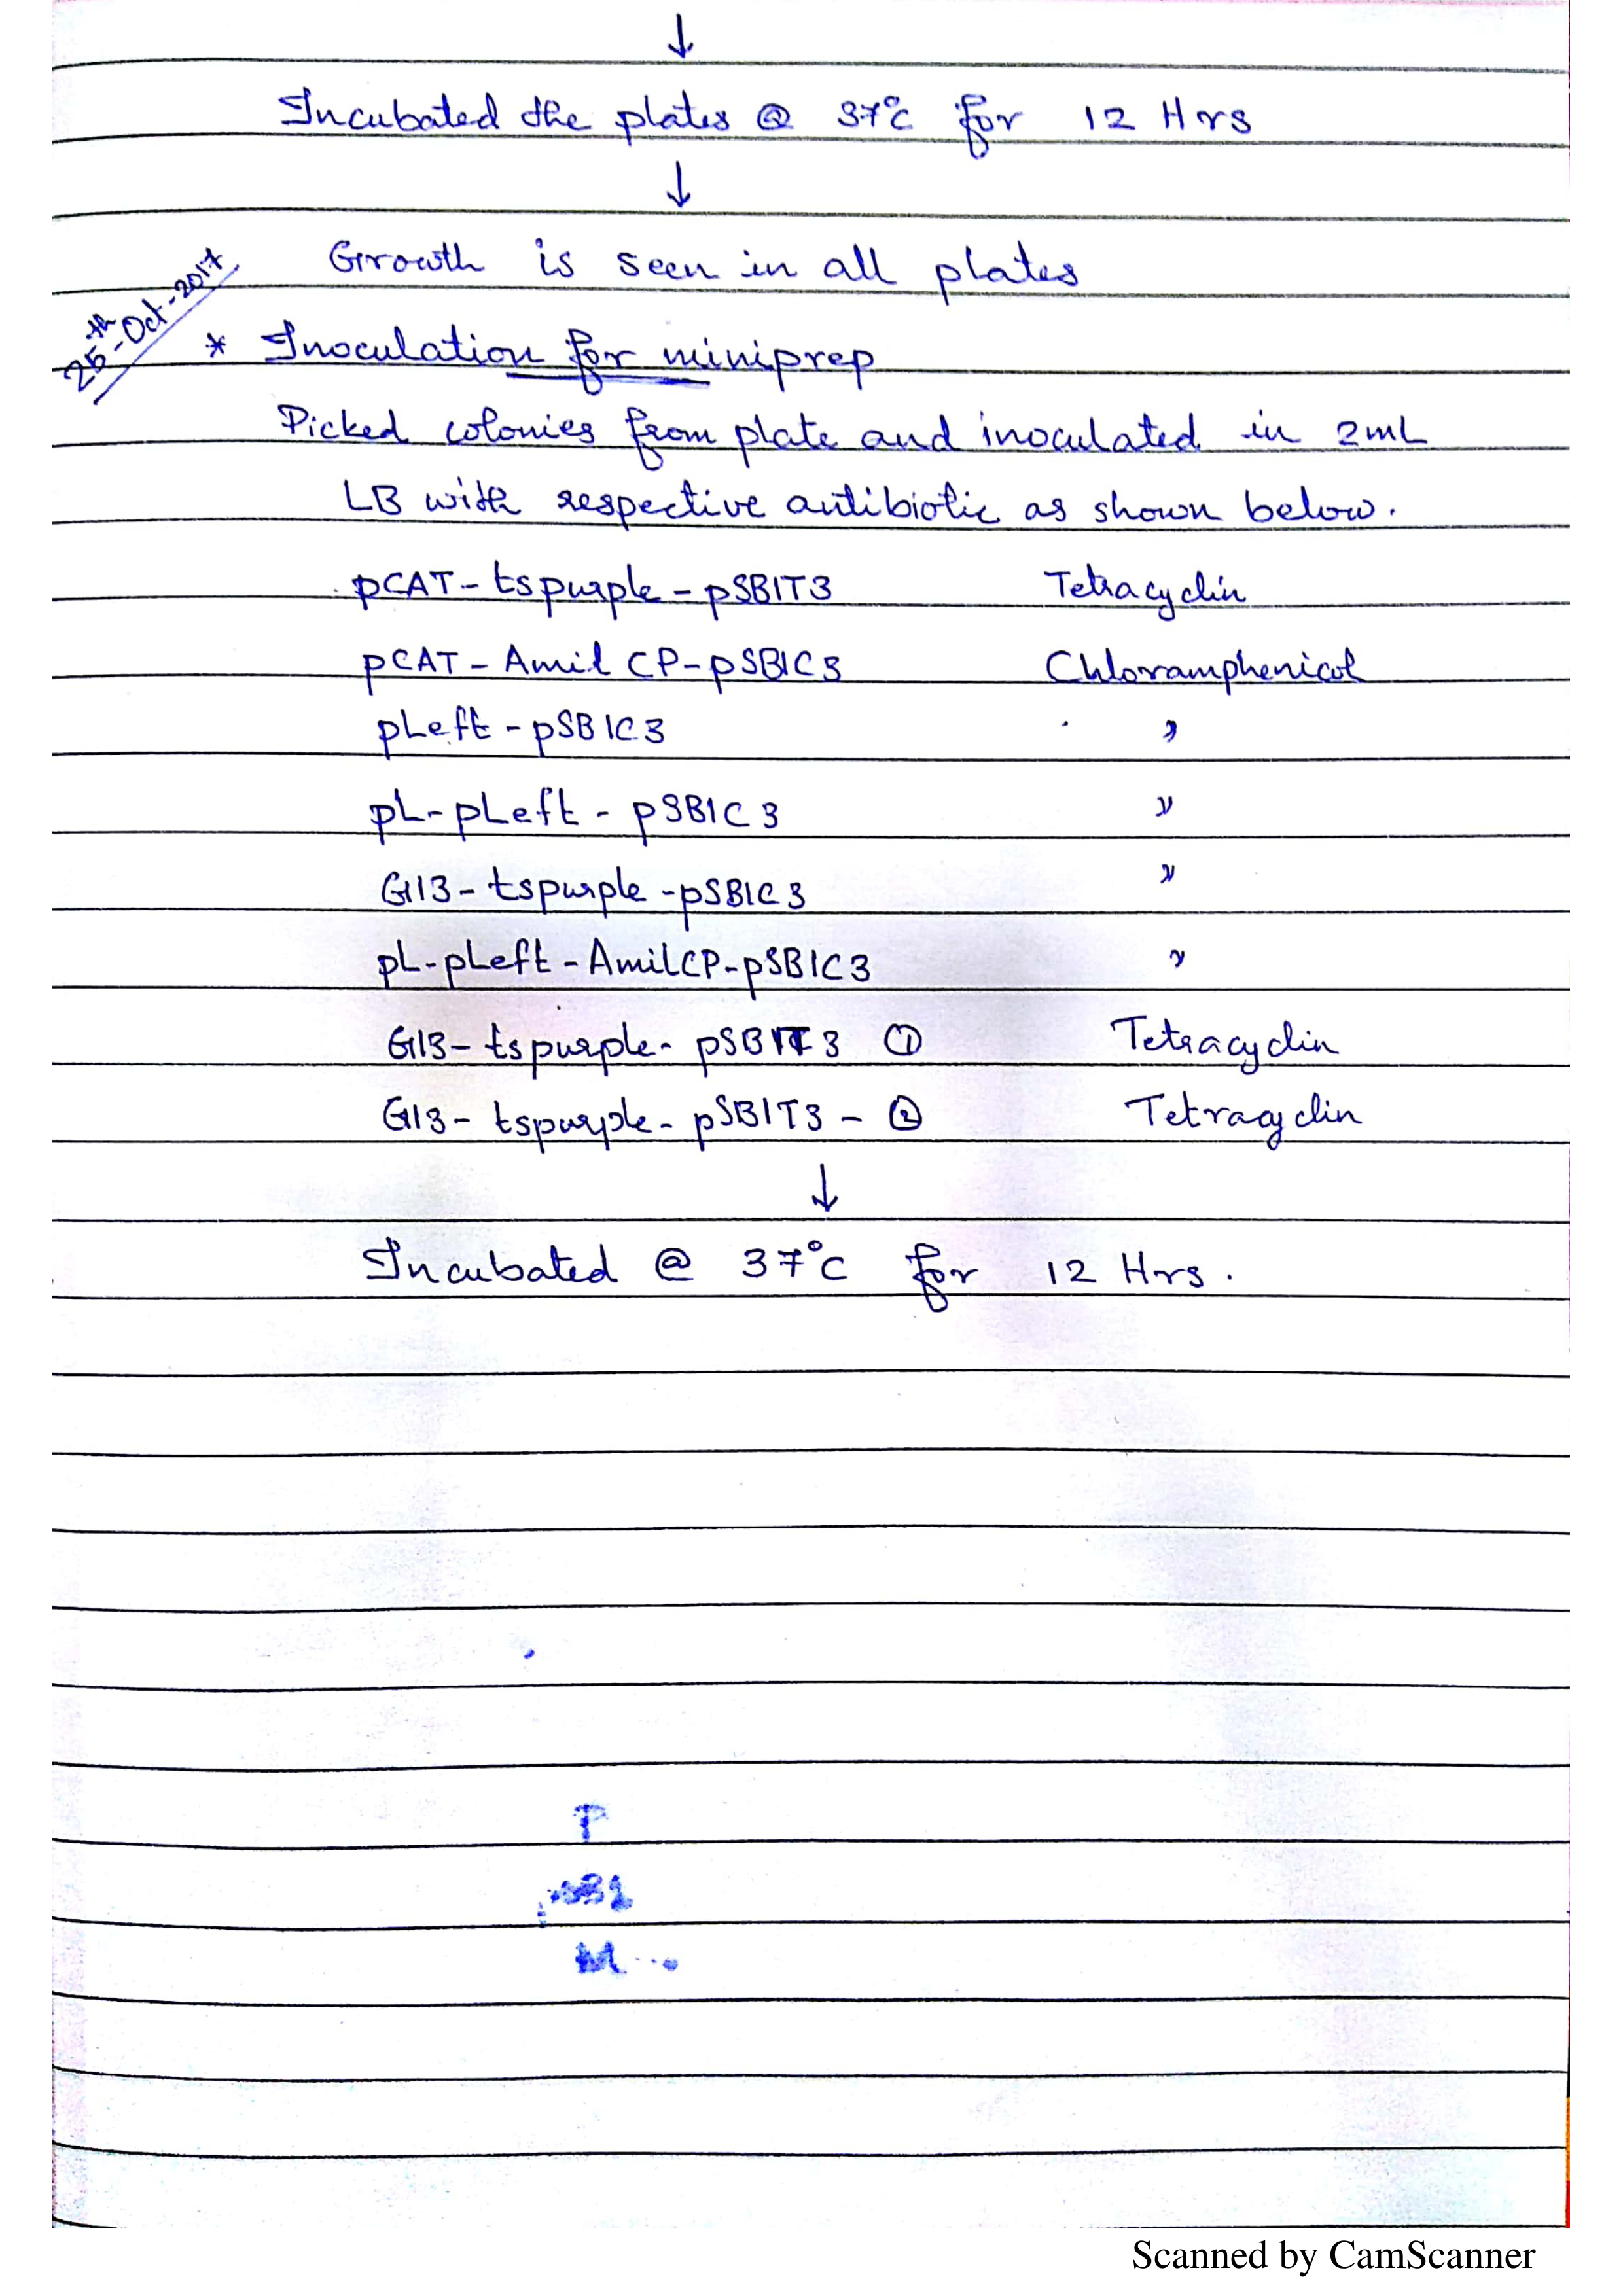 ↓
Incubated the plates @ 37°C for 12 Hrs
↓
Growth is seen in all plates
25th-Oct-2017
* Inoculation for miniprep
Picked colonies from plate and inoculated in 2mL
LB with respective antibiotic as shown below.
pCAT-tspurple-pSB1T3 Tetracyclin
pCAT-Amil CP-pSB1C3 Chloramphenicol
pLeft-pSB1C3 "
pL-pLeft-pSB1C3 "
G13-tspurple-pSB1C3 "
pL-pLeft-AmilCP-pSB1C3 "
G13-tspurple-pSB1T3 ① Tetracyclin
G13-tspurple-pSB1T3-② Tetracyclin
↓
Incubated @ 37°C for 12 Hrs.
Scanned by CamScanner